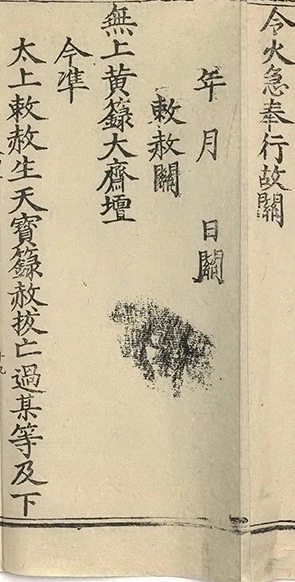 令火急奉行故關
年 月 日關
敕赦關
無上黄籙大齋壇
今準
太上敕赦生天寳籙赦拔亡過某等及下